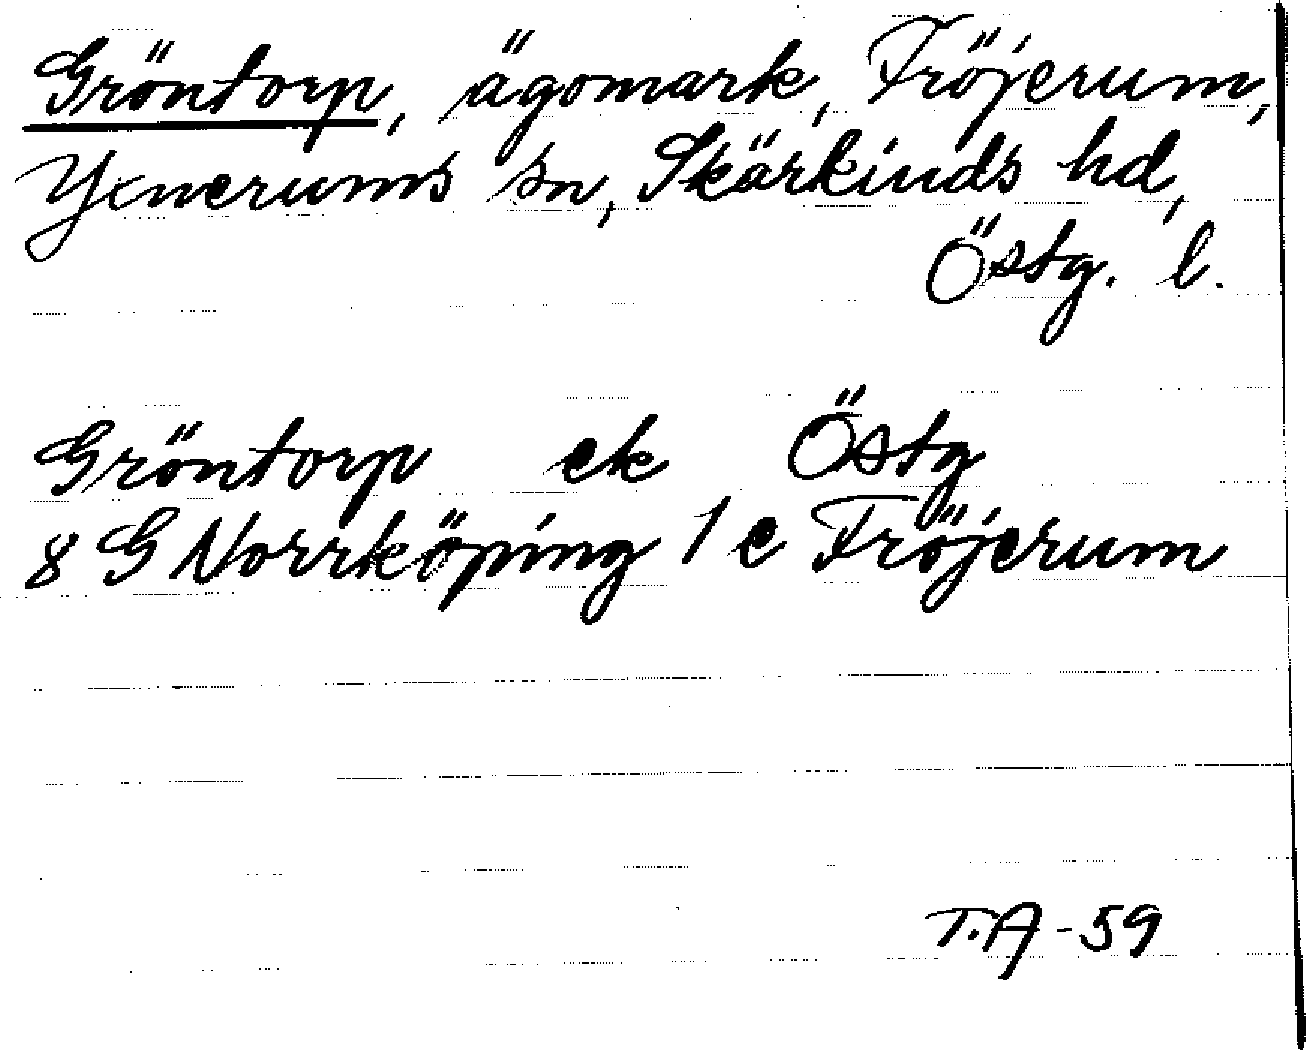 Gröntorp, ägomark, Fröjerum,
Yxnerums sn, Skärkinds hd,
Östg. l.
Gröntorp ek Östg
8 G Norrköping 1 e Fröjerum
T.A -59